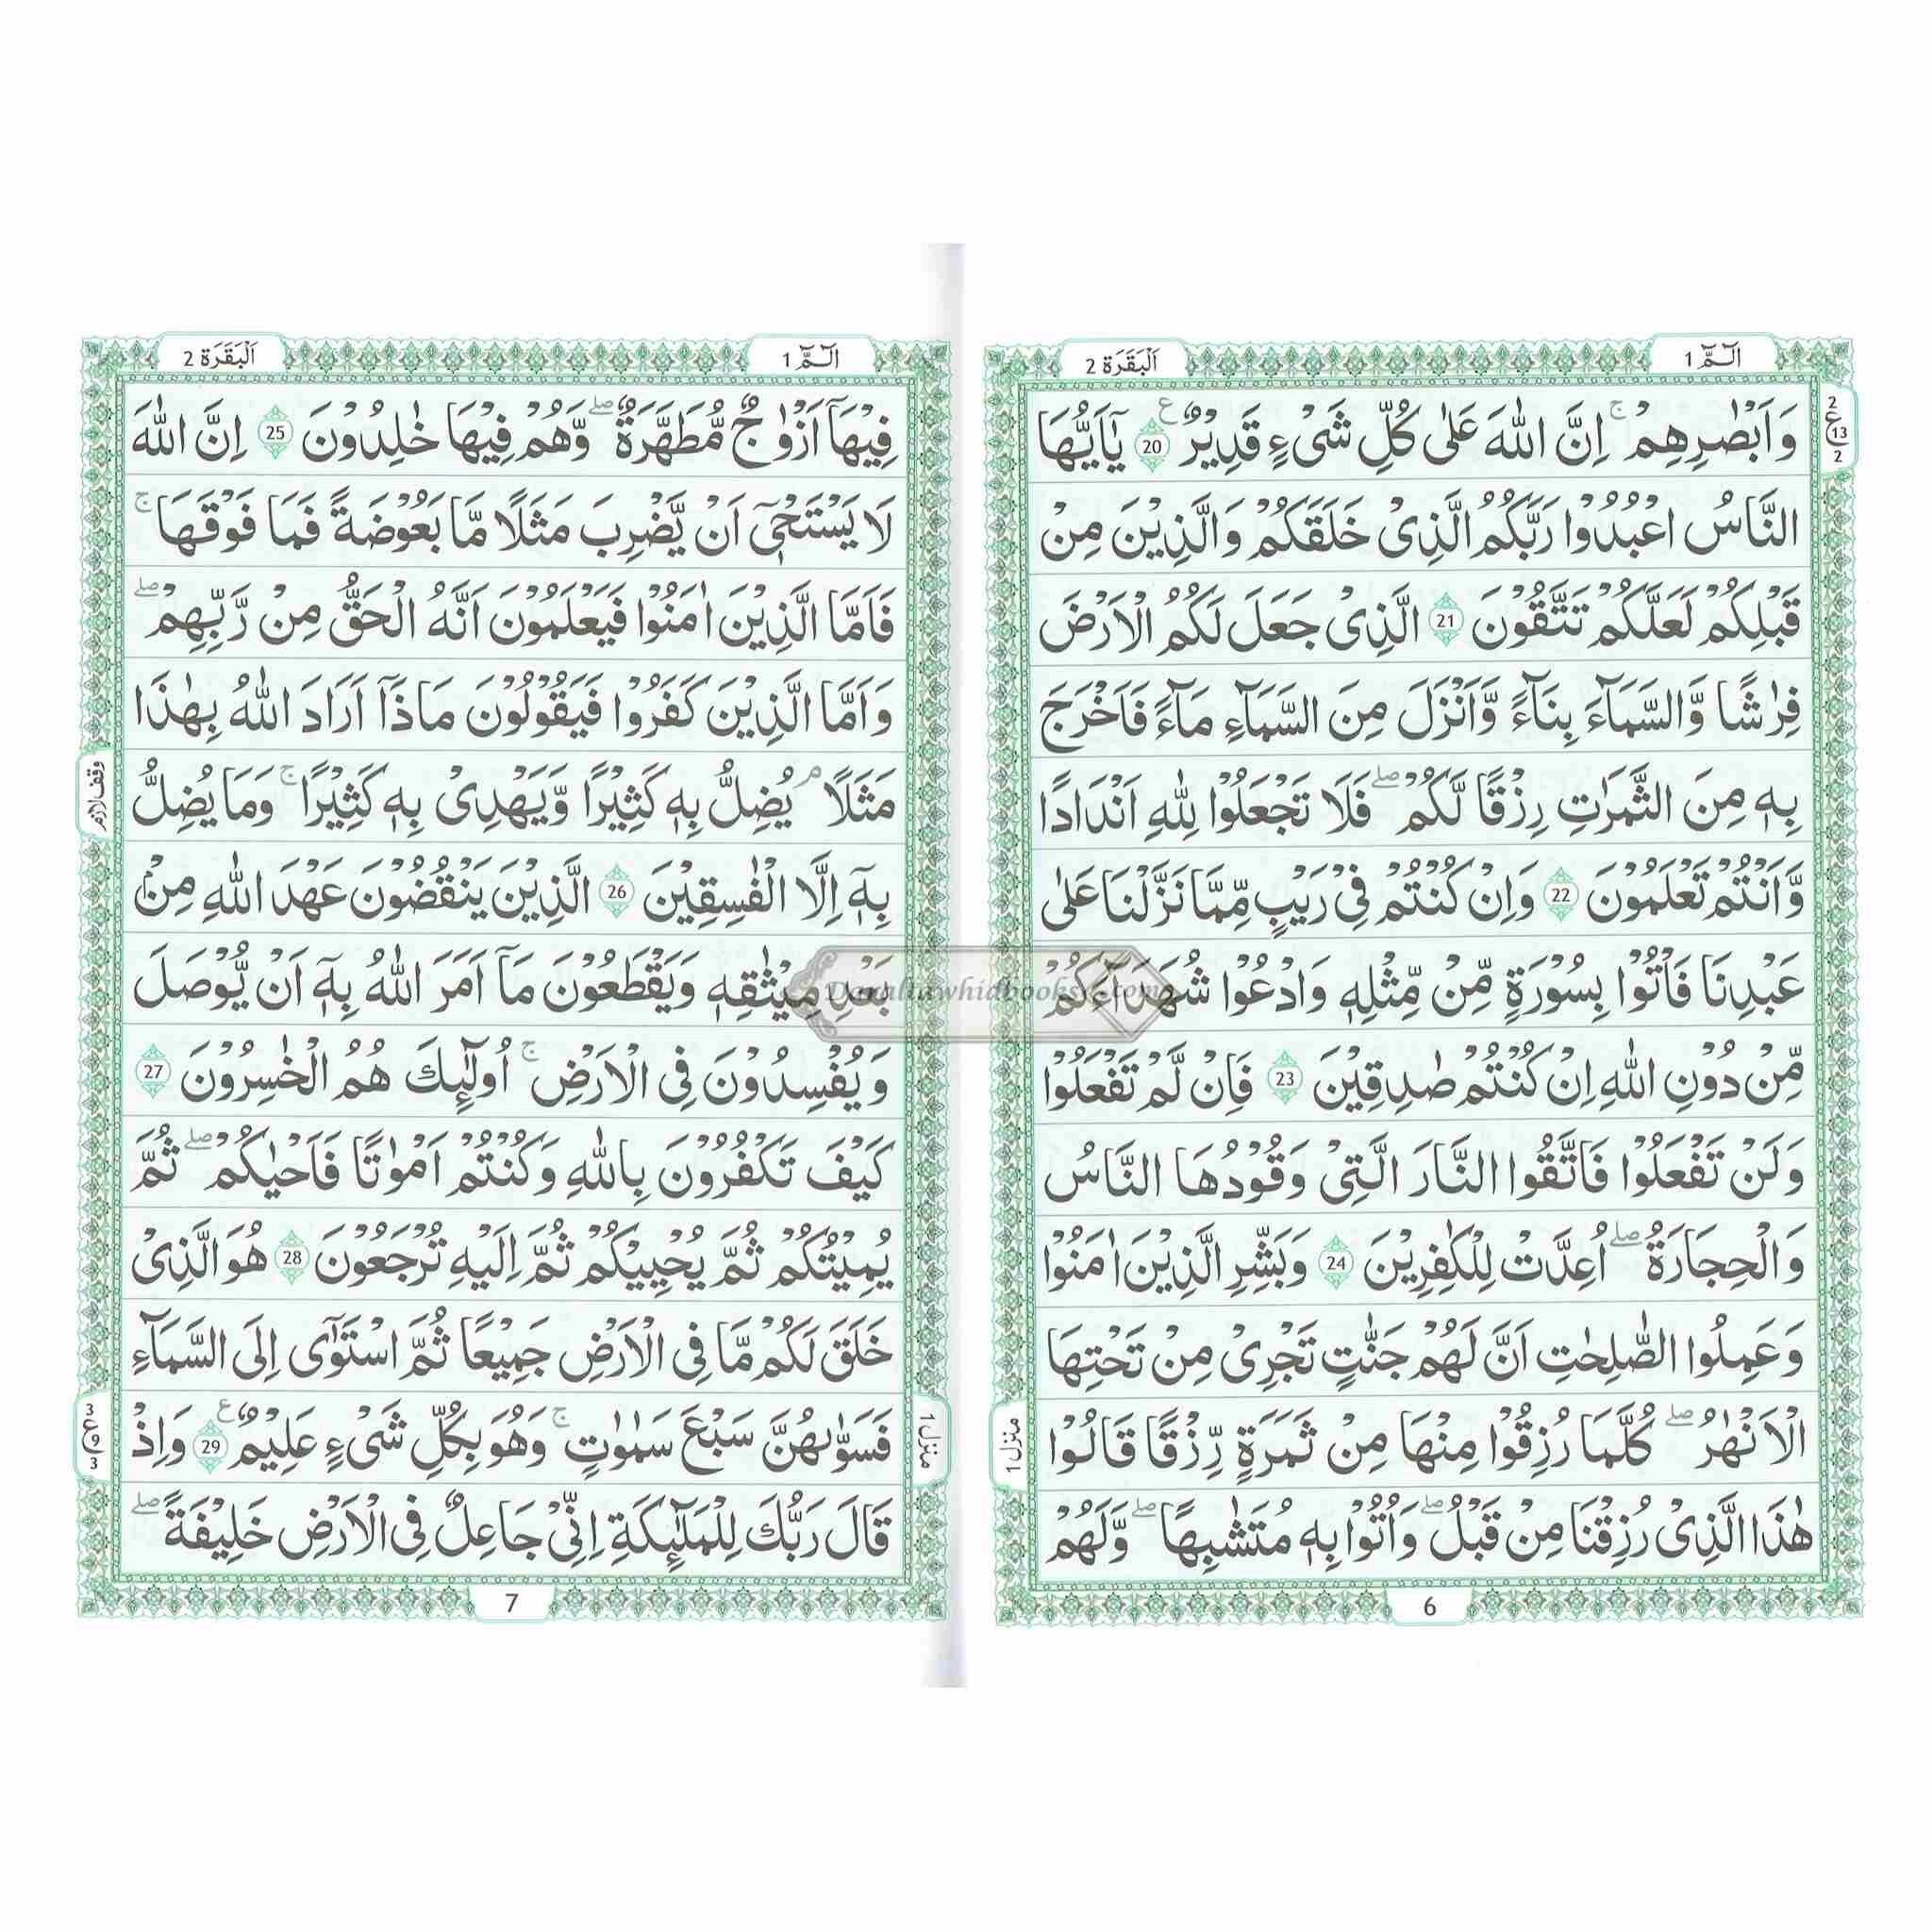 الٓمّٓ 1
اَلْبَقَرَة 2
2
ع
13
2
وَاَبْصٰرِهِمْ ۚ اِنَّ اللّٰهَ عَلٰى كُلِّ شَىْءٍ قَدِيْرٌ ۠ 20 يٰٓاَيُّهَا
النَّاسُ اعْبُدُوْا رَبَّكُمُ الَّذِىْ خَلَقَكُمْ وَالَّذِيْنَ مِنْ
قَبْلِكُمْ لَعَلَّكُمْ تَتَّقُوْنَ 21 الَّذِىْ جَعَلَ لَكُمُ الْاَرْضَ
فِرٰشًا وَّالسَّمَآءَ بِنَآءً وَّاَنْزَلَ مِنَ السَّمَآءِ مَآءً فَاَخْرَجَ
بِهٖ مِنَ الثَّمَرٰتِ رِزْقًا لَّكُمْ ۖ فَلَا تَجْعَلُوْا لِلّٰهِ اَنْدَادًا
وَّاَنْتُمْ تَعْلَمُوْنَ 22 وَاِنْ كُنْتُمْ فِىْ رَيْبٍ مِّمَّا نَزَّلْنَا عَلٰى
عَبْدِنَا فَاْتُوْا بِسُوْرَةٍ مِّنْ مِّثْلِهٖ وَادْعُوْا شُهَدَآءَكُمْ
مِّنْ دُوْنِ اللّٰهِ اِنْ كُنْتُمْ صٰدِقِيْنَ 23 فَاِنْ لَّمْ تَفْعَلُوْا
وَلَنْ تَفْعَلُوْا فَاتَّقُوا النَّارَ الَّتِىْ وَقُوْدُهَا النَّاسُ
وَالْحِجَارَةُ ۖ اُعِدَّتْ لِلْكٰفِرِيْنَ 24 وَبَشِّرِ الَّذِيْنَ اٰمَنُوْا
وَعَمِلُوا الصّٰلِحٰتِ اَنَّ لَهُمْ جَنّٰتٍ تَجْرِىْ مِنْ تَحْتِهَا
الْاَنْهٰرُ ۖ كُلَّمَا رُزِقُوْا مِنْهَا مِنْ ثَمَرَةٍ رِّزْقًا قَالُوْا
هٰذَا الَّذِىْ رُزِقْنَا مِنْ قَبْلُ ۖ وَاُتُوْا بِهٖ مُتَشٰبِهًا ۖ وَّلَهُمْ
منزل 1
6
الٓمّٓ 1
اَلْبَقَرَة 2
فِيْهَآ اَزْوٰجٌ مُّطَهَّرَةٌ ۖ وَّهُمْ فِيْهَا خٰلِدُوْنَ 25 اِنَّ اللّٰهَ
لَا يَسْتَحْىٖٓ اَنْ يَّضْرِبَ مَثَلًا مَّا بَعُوْضَةً فَمَا فَوْقَهَا ۚ
فَاَمَّا الَّذِيْنَ اٰمَنُوْا فَيَعْلَمُوْنَ اَنَّهُ الْحَقُّ مِنْ رَّبِّهِمْ ۖ
وَاَمَّا الَّذِيْنَ كَفَرُوْا فَيَقُوْلُوْنَ مَاذَآ اَرَادَ اللّٰهُ بِهٰذَا
مَثَلًا ۘ يُضِلُّ بِهٖ كَثِيْرًا وَّيَهْدِىْ بِهٖ كَثِيْرًا ۚ وَمَا يُضِلُّ
بِهٖٓ اِلَّا الْفٰسِقِيْنَ 26 الَّذِيْنَ يَنْقُضُوْنَ عَهْدَ اللّٰهِ مِنْۢ
بَعْدِ مِيْثٰقِهٖ وَيَقْطَعُوْنَ مَآ اَمَرَ اللّٰهُ بِهٖٓ اَنْ يُّوْصَلَ
وَيُفْسِدُوْنَ فِى الْاَرْضِ ۚ اُولٰٓئِكَ هُمُ الْخٰسِرُوْنَ 27
كَيْفَ تَكْفُرُوْنَ بِاللّٰهِ وَكُنْتُمْ اَمْوٰتًا فَاَحْيٰكُمْ ۖ ثُمَّ
يُمِيْتُكُمْ ثُمَّ يُحْيِيْكُمْ ثُمَّ اِلَيْهِ تُرْجَعُوْنَ 28 هُوَ الَّذِىْ
خَلَقَ لَكُمْ مَّا فِى الْاَرْضِ جَمِيْعًا ثُمَّ اسْتَوٰٓى اِلَى السَّمَآءِ
فَسَوّٰىهُنَّ سَبْعَ سَمٰوٰتٍ ۚ وَهُوَ بِكُلِّ شَىْءٍ عَلِيْمٌ ۠ 29 وَاِذْ
قَالَ رَبُّكَ لِلْمَلٰٓئِكَةِ اِنِّىْ جَاعِلٌ فِى الْاَرْضِ خَلِيْفَةً ۖ
وقف لازم
3
ع
9
3
منزل 1
7